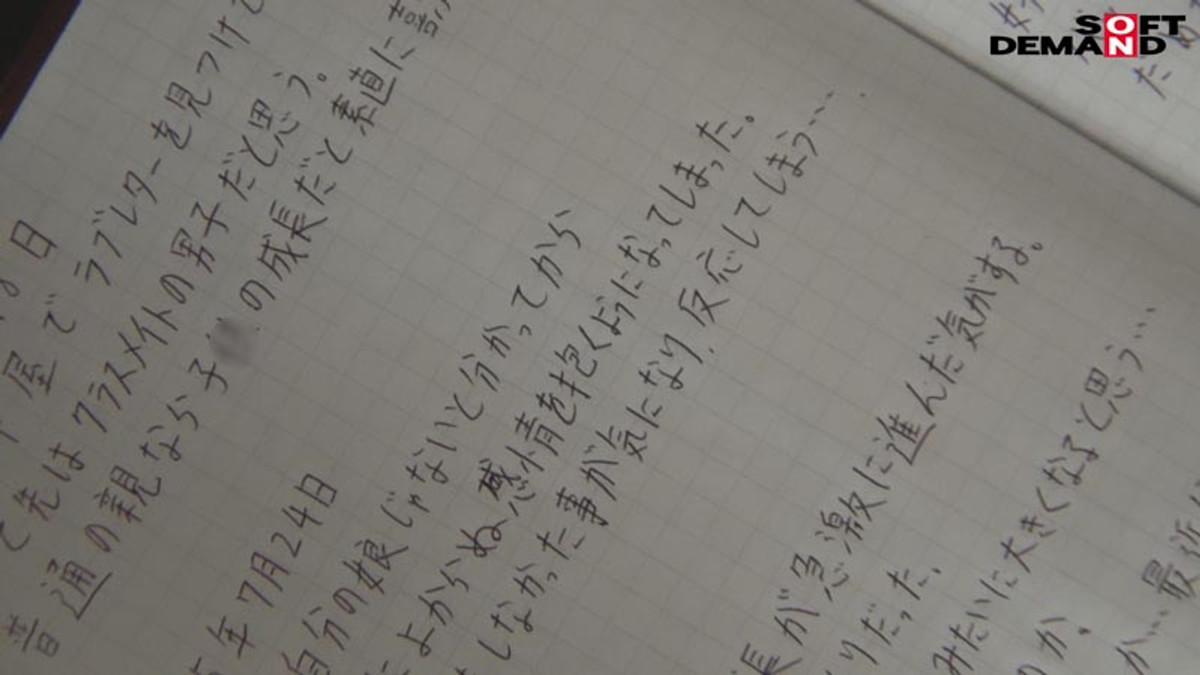 SOFT
ON
DEMAND
日
屋でラブレターを見つけて
先はクラスメイトの男子だと思う。
普通の親なら子の成長だと素直に喜
年7月24日
自分の娘じゃないと分かってから
よからぬ感情を抱くようになってしまった。
しなかった事が気になり、反応してしまう…
長が急激に進んだ気がする。
りだった。
みたいに大きくなると思う…
のか。
か…最近